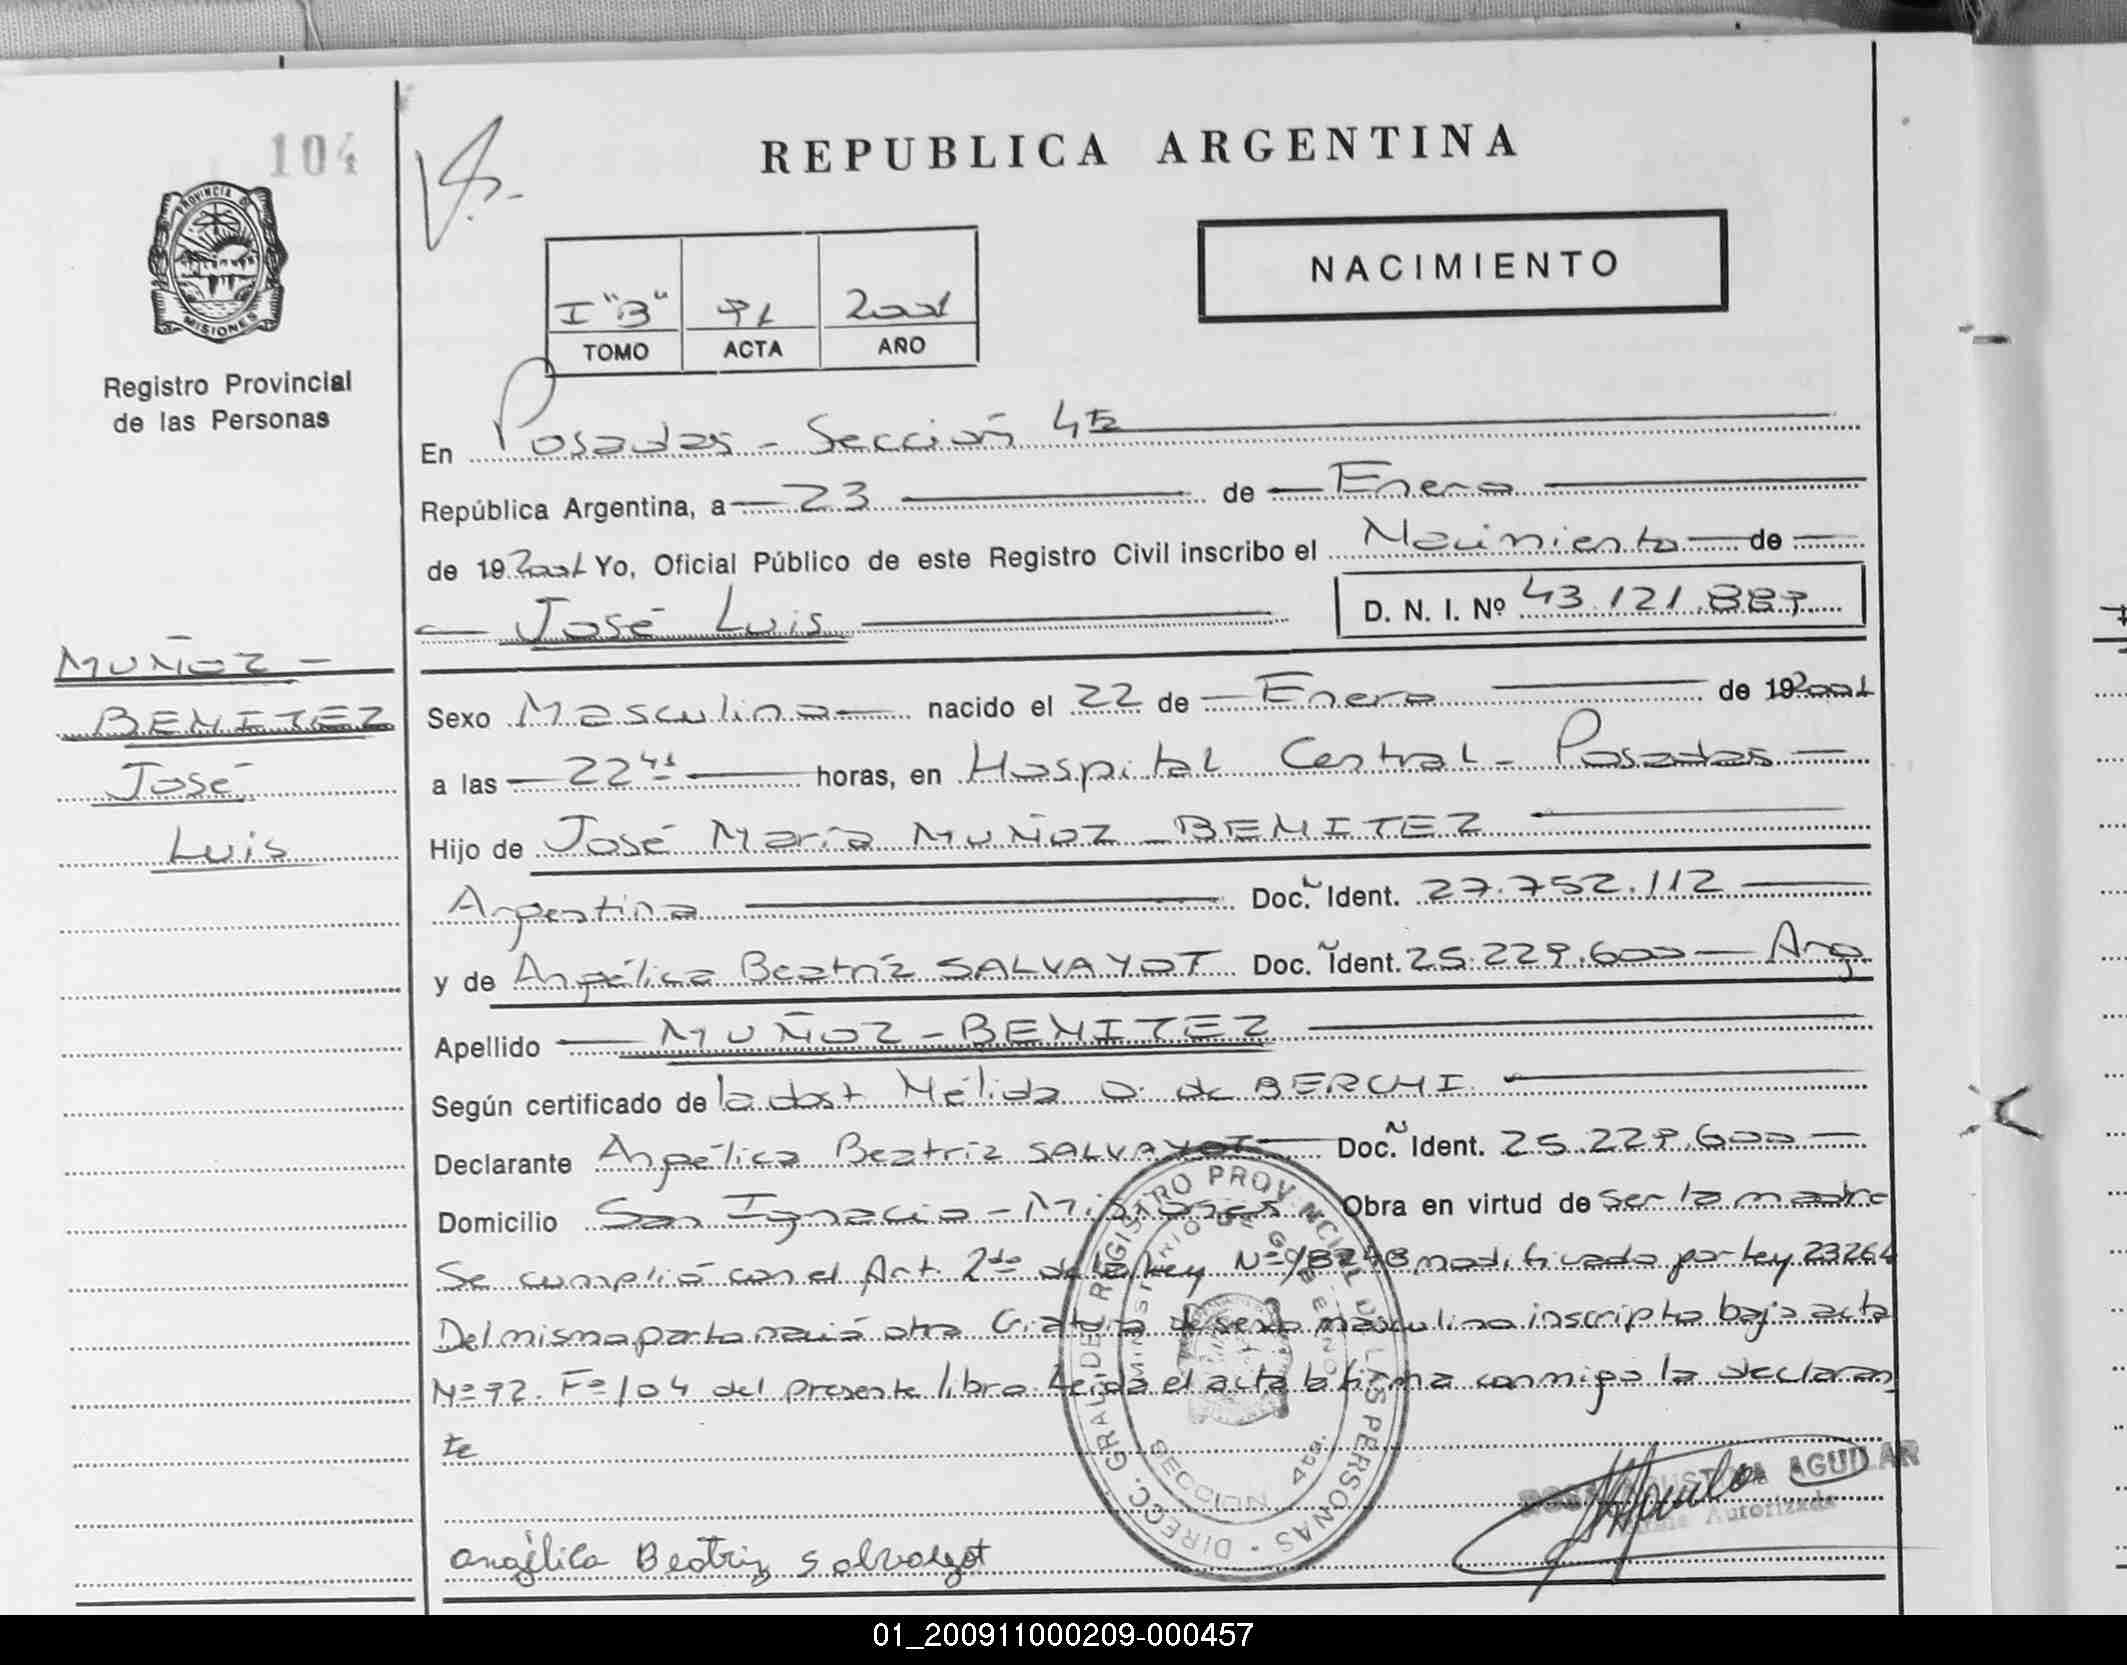 104
PROVINCIA DE
MISIONES
Registro Provincial
de las Personas
REPUBLICA ARGENTINA
NACIMIENTO
I "B" 91 2001
TOMO ACTA AÑO
En Posadas - Sección 4ta
República Argentina, a 23 de Enero
de 19 2001 Yo, Oficial Público de este Registro Civil inscribo el Nacimiento de
José Luis D. N. I. Nº 43.121.887
MUÑOZ -
BENITEZ
José
Luis
Sexo Masculino nacido el 22 de Enero de 19 2001
a las 22 41 horas, en Hospital Central - Posadas
Hijo de José María MUÑOZ - BENITEZ
Argentina Doc. Ident. 27.752.112
y de Angélica Beatríz SALVAYOT Doc. Ident. 25.229.600 - Arg
Apellido MUÑOZ - BENITEZ
Según certificado de la obst Nélida O. de BERCHI
Declarante Angélica Beatríz SALVAYOT Doc. Ident. 25.229.600
Domicilio San Ignacio - Misiones Obra en virtud de ser la madre
Se cumplió con el Art. 2do de la Ley Nº 18248 modificado por Ley 23264
Del mismo parto nació otra Criatura de sexo masculino inscripto bajo acta
Nº 92. Fº 104 del presente libro. Leída el acta la firma conmigo la declaran
te
DIRECC. GRAL. DEL REGISTRO PROVINCIAL DE LAS PERSONAS
MINISTERIO DE GOBIERNO
SECCION 4ta.
AGUSTINA AGUILAR
Autorizada
Angélica Beatriz Salvayot
01_200911000209-000457